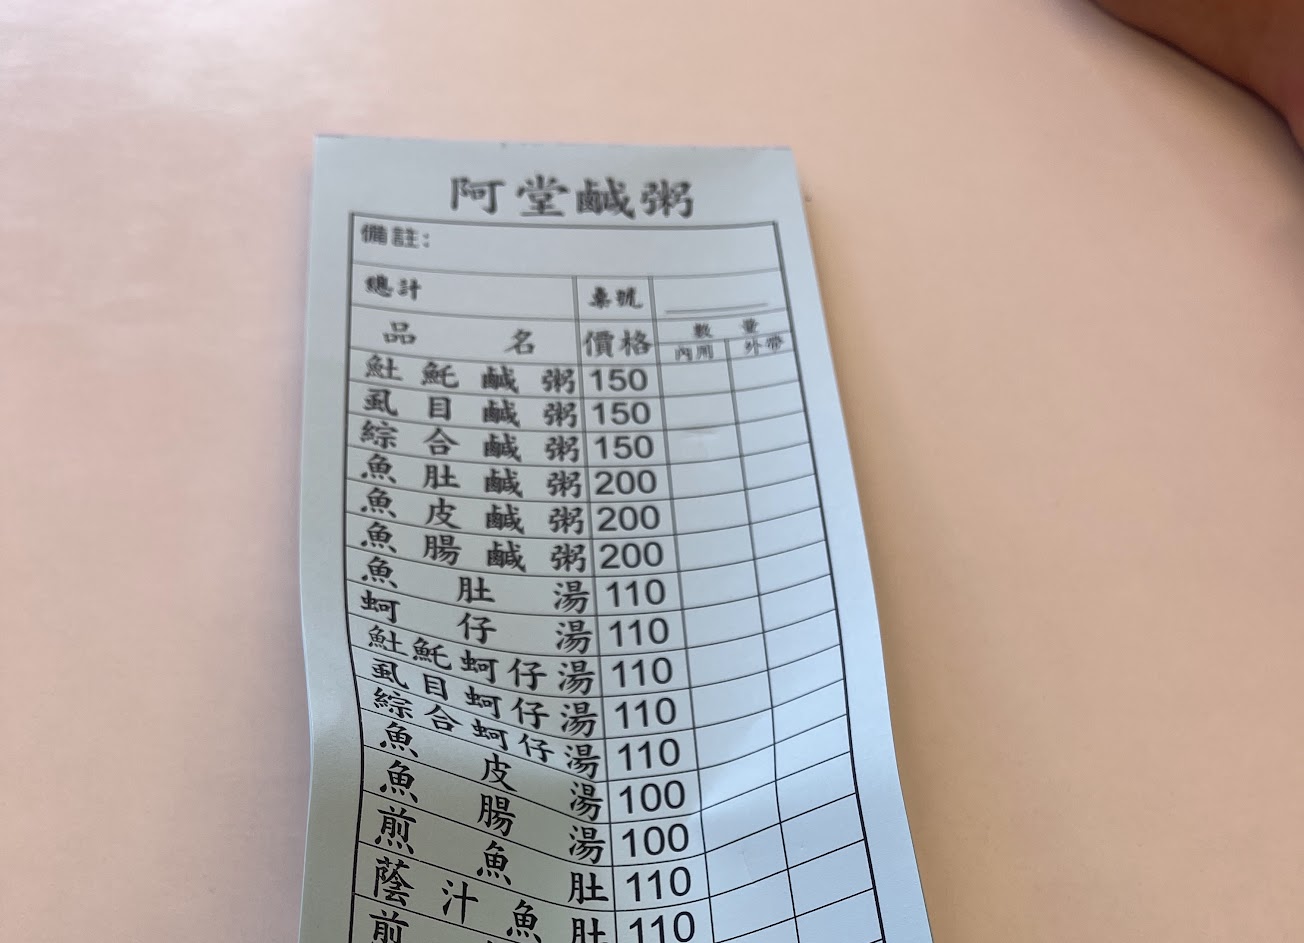 阿堂鹹粥
備註:
總計 桌號
品名 價格 數量
內用 外帶
魠魠鹹粥 150
虱目鹹粥 150
綜合鹹粥 150
魚肚鹹粥 200
魚皮鹹粥 200
魚腸鹹粥 200
魚肚湯 110
蚵仔湯 110
魠魠蚵仔湯 110
虱目蚵仔湯 110
綜合蚵仔湯 110
魚皮湯 100
魚腸湯 100
煎魚肚 110
蔭汁魚肚 110
煎